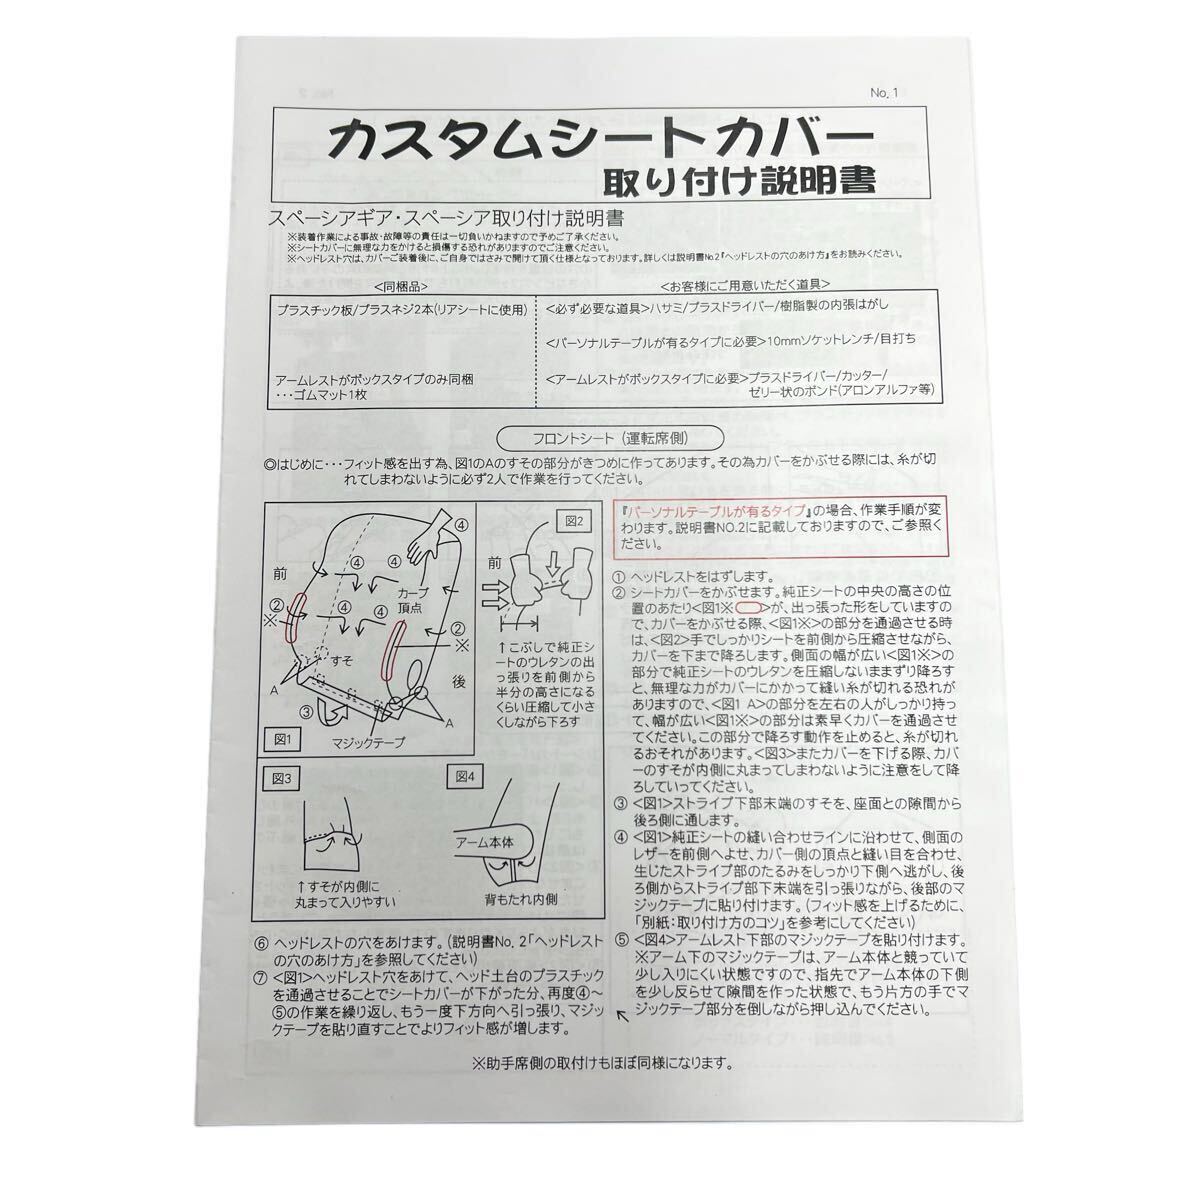 No.1
カスタムシートカバー
取り付け説明書
スペーシアギア・スペーシア取り付け説明書
※装着作業による事故・故障等の責任は一切負いかねますので予めご了承ください。
※シートカバーに無理な力をかけると損傷する恐れがありますのでご注意ください。
※ヘッドレスト穴は、カバーご装着後に、ご自身ではさみで開けて頂く仕様となっております。詳しくは説明書No.2『ヘッドレストの穴のあけ方』をお読みください。
<同梱品>
<お客様にご用意いただく道具>
プラスチック板/プラスネジ2本(リアシートに使用)
<必ず必要な道具>ハサミ/プラスドライバー/樹脂製の内張はがし
<パーソナルテーブルが有るタイプに必要>10mmソケットレンチ/目打ち
アームレストがボックスタイプのみ同梱
・・・ゴムマット1枚
<アームレストがボックスタイプに必要>プラスドライバー/カッター/
ゼリー状のボンド(アロンアルファ等)
フロントシート (運転席側)
◎はじめに・・・フィット感を出す為、図1のAのすその部分がきつめに作ってあります。その為カバーをかぶせる際には、糸が切
れてしまわないように必ず2人で作業を行ってください。
前
④
④
④
カーブ
頂点
②
※
④
④
②
※
すそ
後
A
③
A
図1
マジックテープ
図2
前
↑こぶしで純正シ
ートのウレタンの出
っ張りを前側から
半分の高さになる
くらい圧縮して小さ
くしながら下ろす
図3
↑すそが内側に
丸まって入りやすい
図4
アーム本体
背もたれ内側
『パーソナルテーブルが有るタイプ』の場合、作業手順が変
わります。説明書NO.2に記載しておりますので、ご参照く
ださい。
① ヘッドレストをはずします。
② シートカバーをかぶせます。純正シートの中央の高さの位
置のあたり<図1※ >が、出っ張った形をしていますの
で、カバーをかぶせる際、<図1※>の部分を通過させる時
は、<図2>手でしっかりシートを前側から圧縮させながら、
カバーを下まで降ろします。側面の幅が広い<図1※>の
部分で純正シートのウレタンを圧縮しないままずり降ろす
と、無理な力がカバーにかかって縫い糸が切れる恐れが
ありますので、<図1 A>の部分を左右の人がしっかり持っ
て、幅が広い<図1※>の部分は素早くカバーを通過させ
てください。この部分で降ろす動作を止めると、糸が切れ
るおそれがあります。<図3>またカバーを下げる際、カバ
ーのすそが内側に丸まってしまわないように注意をして降
ろしていってください。
③ <図1>ストライプ下部末端のすそを、座面との隙間から
後ろ側に通します。
④ <図1>純正シートの縫い合わせラインに沿わせて、側面の
レザーを前側へよせ、カバー側の頂点と縫い目を合わせ、
生じたストライプ部のたるみをしっかり下側へ逃がし、後
ろ側からストライプ部下末端を引っ張りながら、後部のマ
ジックテープに貼り付けます。(フィット感を上げるために、
「別紙:取り付け方のコツ」を参考にしてください)
⑤ <図4>アームレスト下部のマジックテープを貼り付けます。
※アーム下のマジックテープは、アーム本体と競っていて
少し入りにくい状態ですので、指先でアーム本体の下側
を少し反らせて隙間を作った状態で、もう片方の手でマ
ジックテープ部分を倒しながら押し込んでください。
⑥ ヘッドレストの穴をあけます。(説明書No.2「ヘッドレスト
の穴のあけ方」を参照してください)
⑦ <図1>ヘッドレスト穴をあけて、ヘッド土台のプラスチック
を通過させることでシートカバーが下がった分、再度④～
⑤の作業を繰り返し、もう一度下方向へ引っ張り、マジッ
クテープを貼り直すことでよりフィット感が増します。
※助手席側の取付けもほぼ同様になります。